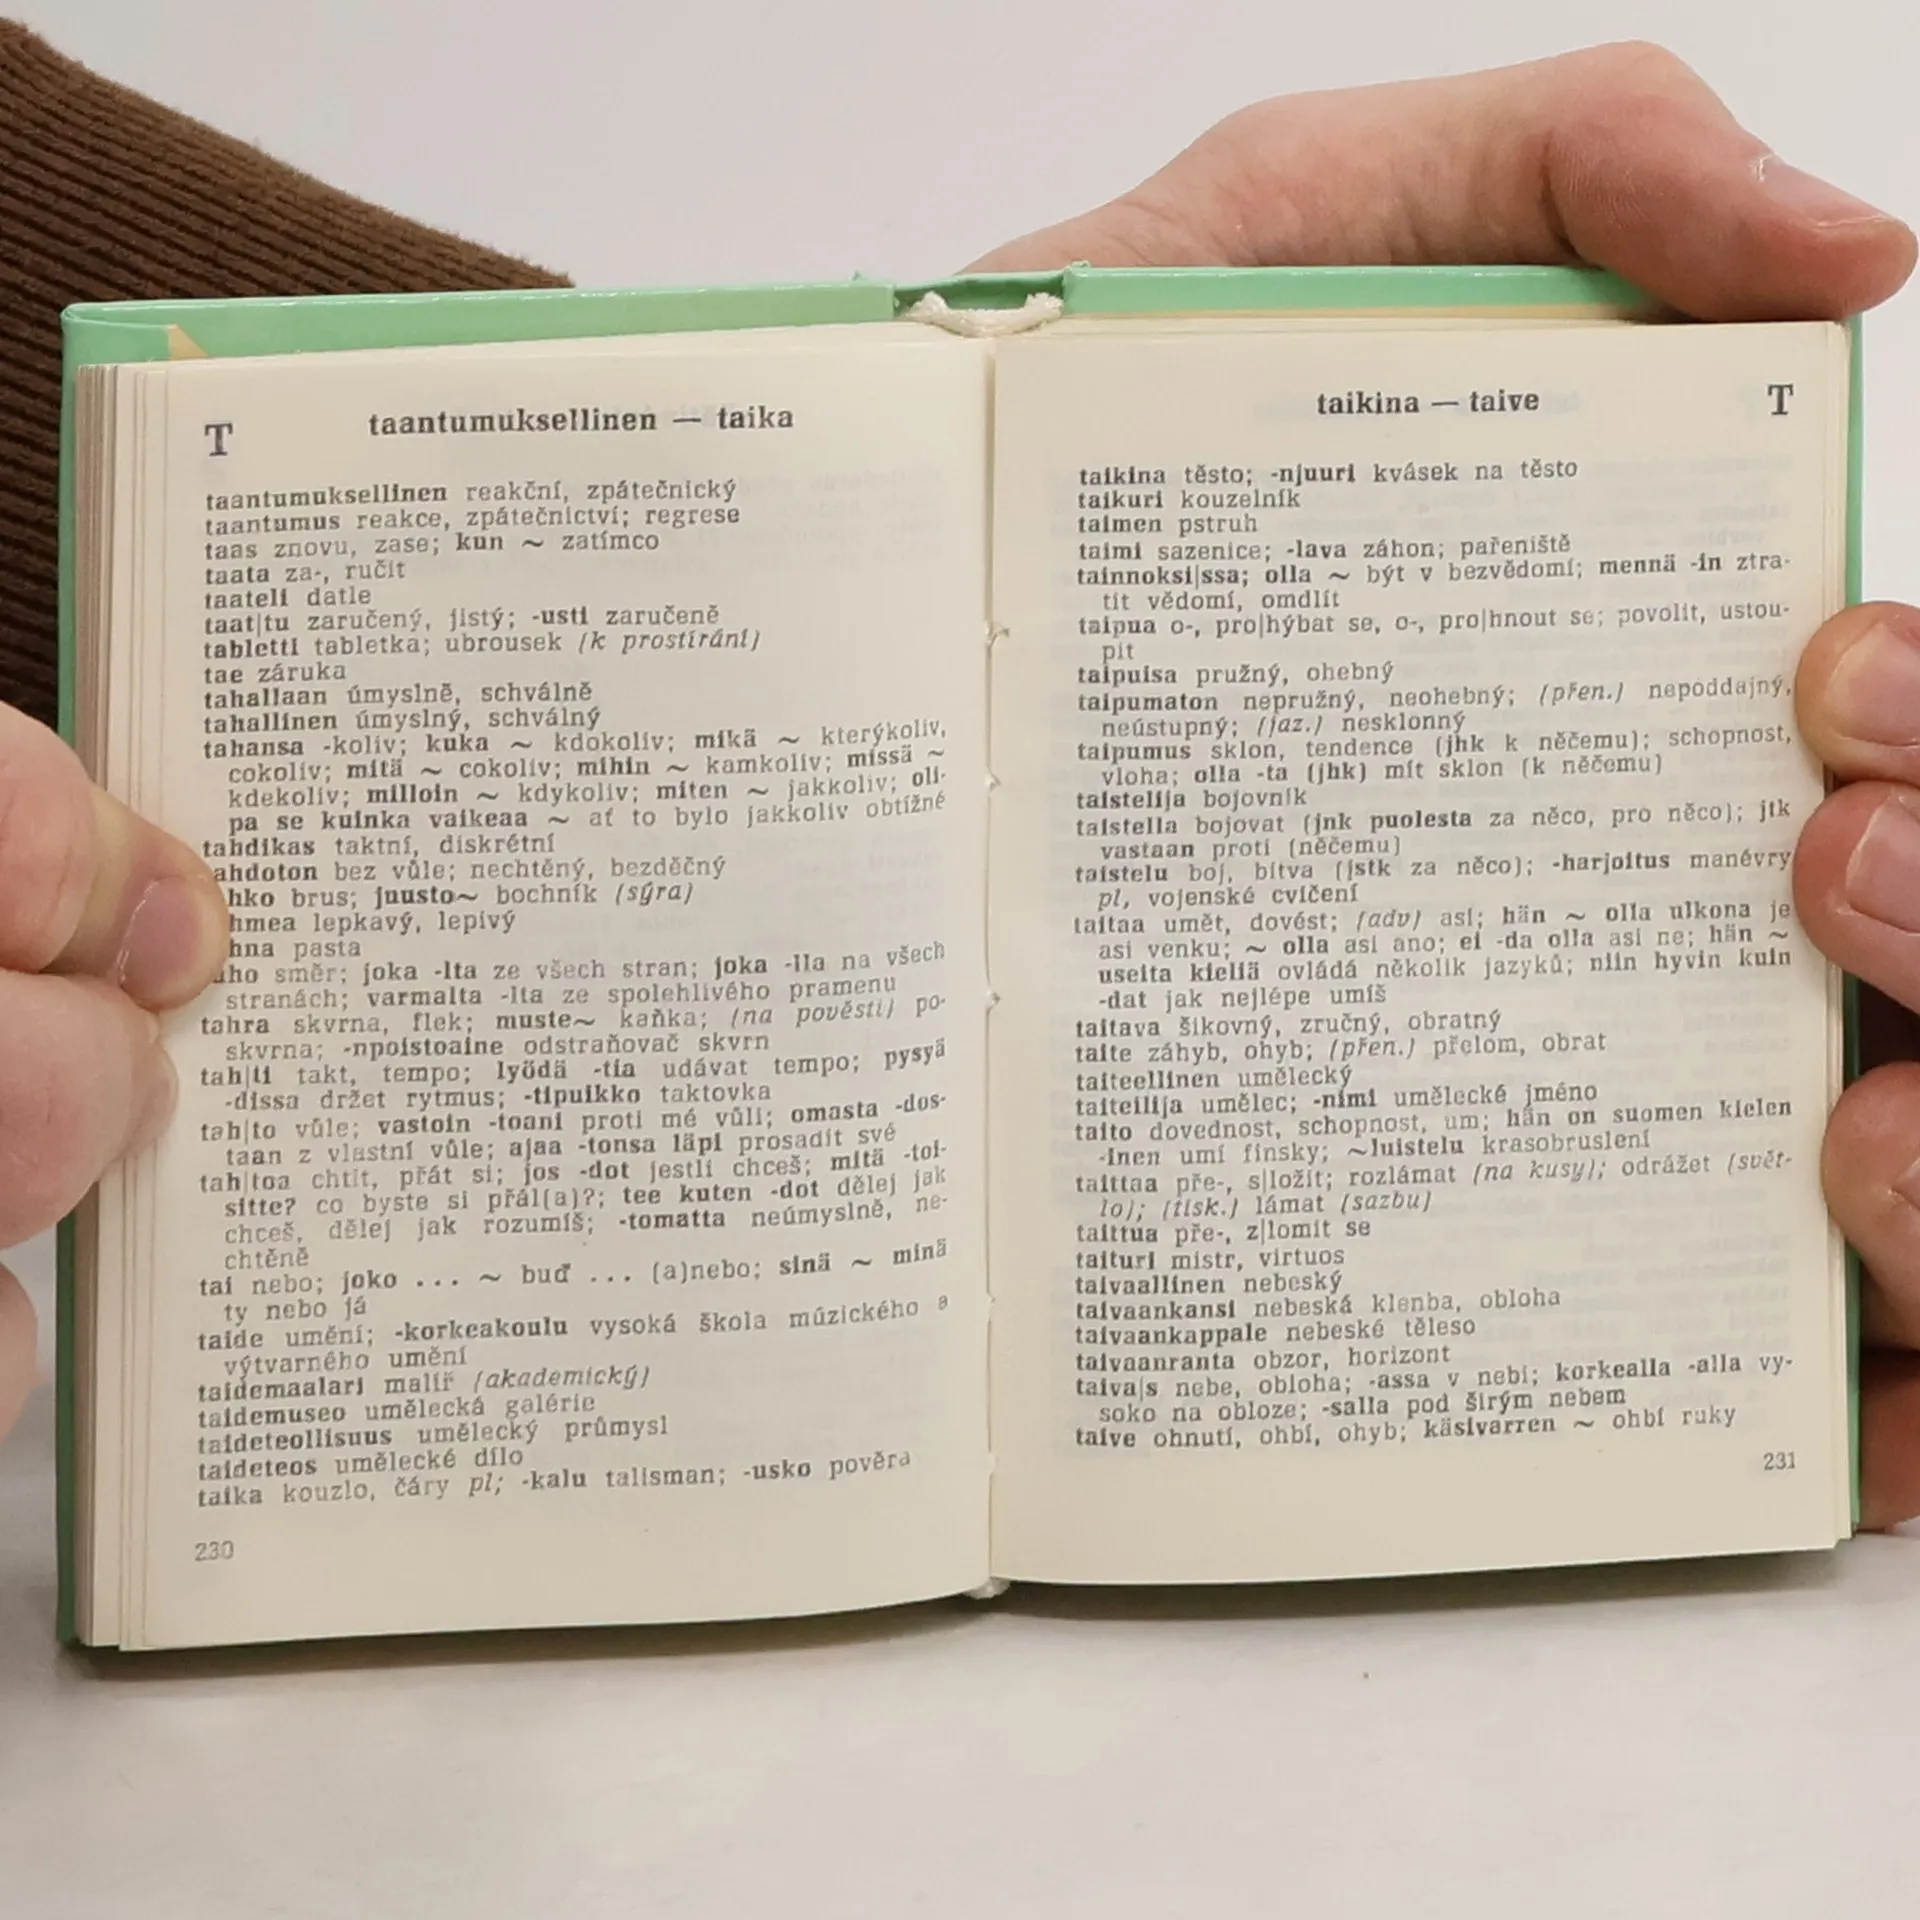 T
taantumuksellinen — taika
taantumuksellinen reakční, zpátečnický
taantumus reakce, zpátečnictví; regrese
taas znovu, zase; kun ~ zatímco
taata za-, ručit
taateli datle
taat|tu zaručený, jistý; -usti zaručeně
tabletti tabletka; ubrousek (k prostírání)
tae záruka
tahallaan úmyslně, schválně
tahallinen úmyslný, schválný
tahansa -koliv; kuka ~ kdokoliv; mikä ~ kterýkoliv,
cokoliv; mitä ~ cokoliv; mihin ~ kamkoliv; missä ~
kdekoliv; milloin ~ kdykoliv; miten ~ jakkoliv; oli-
pa se kuinka vaikeaa ~ ať to bylo jakkoliv obtížné
tahdikas taktní, diskrétní
ahdoton bez vůle; nechtěný, bezděčný
hko brus; juusto~ bochník (sýra)
hmea lepkavý, lepivý
hna pasta
aho směr; joka -lta ze všech stran; joka -lla na všech
stranách; varmalta -lta ze spolehlivého pramenu
tahra skvrna, flek; muste~ kaňka; (na pověsti) po-
skvrna; -npoistoaine odstraňovač skvrn
tah|ti takt, tempo; lyödä -tia udávat tempo; pysyä
-dissa držet rytmus; -tipuikko taktovka
tah|to vůle; vastoin -toani proti mé vůli; omasta -dos-
taan z vlastní vůle; ajaa -tonsa läpi prosadit své
tah|toa chtít, přát si; jos -dot jestli chceš; mitä -toi-
sitte? co byste si přál(a)?; tee kuten -dot dělej jak
chceš, dělej jak rozumíš; -tomatta neúmyslně, ne-
chtěně
tai nebo; joko ... ~ buď ... (a)nebo; sinä ~ minä
ty nebo já
taide umění; -korkeakoulu vysoká škola múzického a
výtvarného umění
taidemaalari malíř (akademický)
taidemuseo umělecká galérie
taideteollisuus umělecký průmysl
taideteos umělecké dílo
taika kouzlo, čáry pl; -kalu talisman; -usko pověra
230
taikina — taive
T
taikina těsto; -njuuri kvásek na těsto
taikuri kouzelník
taimen pstruh
taimi sazenice; -lava záhon; pařeniště
tainnoksi|ssa; olla ~ být v bezvědomí; mennä -in ztra-
tit vědomí, omdlít
taipua o-, pro|hýbat se, o-, pro|hnout se; povolit, ustou-
pit
taipuisa pružný, ohebný
taipumaton nepružný, neohebný; (přen.) nepoddajný,
neústupný; (jaz.) nesklonný
taipumus sklon, tendence (jhk k něčemu); schopnost,
vloha; olla -ta (jhk) mít sklon (k něčemu)
taistelija bojovník
taistella bojovat (jnk puolesta za něco, pro něco); jtk
vastaan proti (něčemu)
taistelu boj, bitva (jstk za něco); -harjoitus manévry
pl, vojenské cvičení
taitaa umět, dovést; (adv) asi; hän ~ olla ulkona je
asi venku; ~ olla asi ano; ei -da olla asi ne; hän ~
useita kieliä ovládá několik jazyků; niin hyvin kuin
-dat jak nejlépe umíš
taitava šikovný, zručný, obratný
taite záhyb, ohyb; (přen.) přelom, obrat
taiteellinen umělecký
taiteilija umělec; -nimi umělecké jméno
taito dovednost, schopnost, um; hän on suomen kielen
-inen umí finsky; ~luistelu krasobruslení
taittaa pře-, s|ložit; rozlámat (na kusy); odrážet (svět-
lo); (tisk.) lámat (sazbu)
taittua pře-, z|lomit se
taituri mistr, virtuos
taivaallinen nebeský
taivaankansi nebeská klenba, obloha
taivaankappale nebeské těleso
taivaanranta obzor, horizont
taiva|s nebe, obloha; -assa v nebi; korkealla -alla vy-
soko na obloze; -salla pod širým nebem
taive ohnutí, ohbí, ohyb; käsivarren ~ ohbí ruky
231